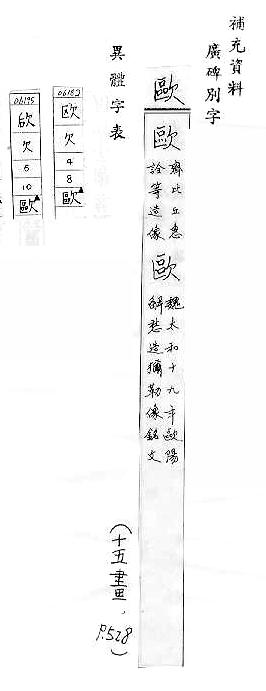 補充資料
廣碑別字
歐
歐
齊比丘惠
詮等造像
歐
魏太和十九年歐陽
解愁造彌勒像銘文
(十五畫, P.528)
異體字表
06182
欧
欠
4
8
歐
06195
欠
6
10
歐